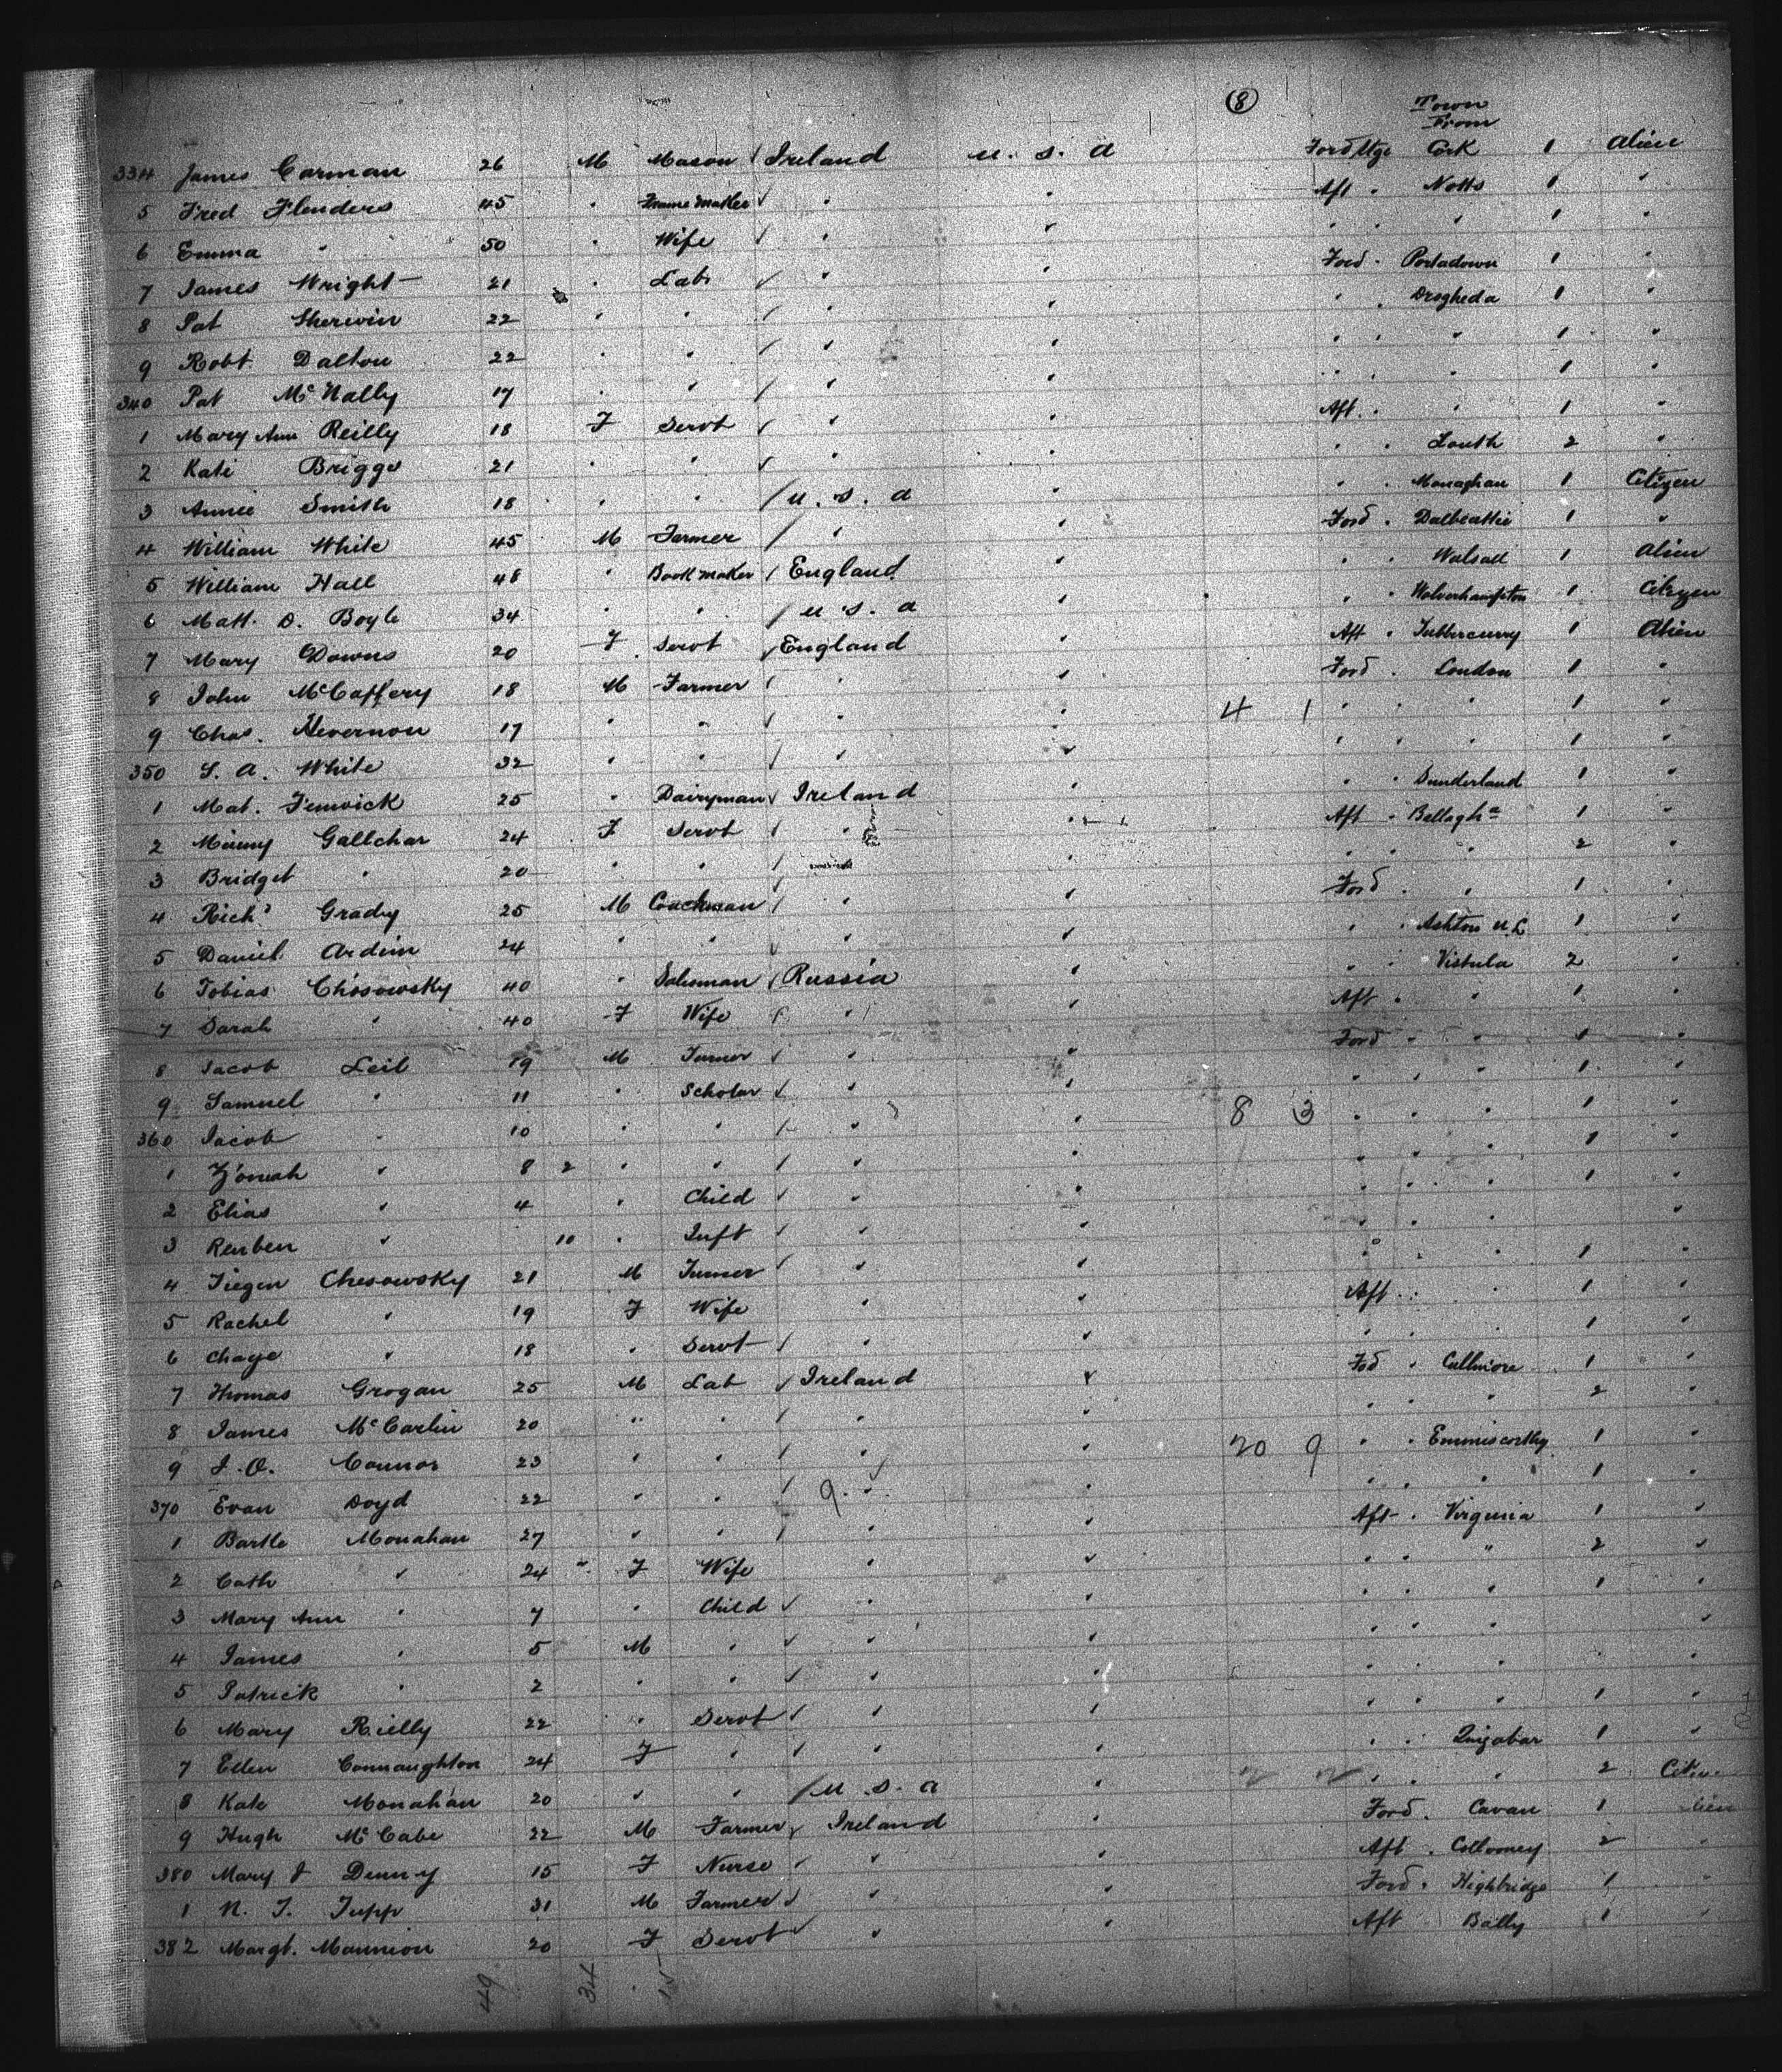 8
Town
From
334 James Carman 26 M Mason Ireland U. S. A Ford Stge Cork 1 Alien
5 Fred Flenders 45 " Frame Maker " " Aft " Notts 1 "
6 Emma " 50 " Wife " " " " " 1 "
7 James Wright 21 " Lab " " Ford " Portadown 1 "
8 Pat Sherwin 22 " " " " " " Drogheda 1 "
9 Robt Dalton 22 " " " " " " " 1 "
340 Pat McNally 17 " " " " " " " 1 "
1 Mary Ann Reilly 18 F Servt " " Aft " " 1 "
2 Kate Briggs 21 " " " " " " Louth 2 "
3 Annie Smith 18 " " U. S. A " " " Monaghan 1 Citizen
4 William White 45 M Farmer " " Ford " Dalbeattie 1 "
5 William Hall 48 " Book maker England " " " Walsall 1 Alien
6 Matt. D. Boyle 34 " " U. S. A " " " Wolverhampton 1 Citizen
7 Mary Downs 20 F Servt England " Aft " Tubbercurry 1 Alien
8 John McCaffery 18 M Farmer " " Ford " London 1 "
9 Chas. Hevernon 17 " " " " 4 1 " " " 1 "
350 S. A. White 32 " " " " " " " 1 "
1 Mat. Fenwick 25 " Dairyman Ireland " " " Sunderland 1 "
2 Minny Gallchar 24 F Servt " " Aft " Bellagha 1 "
3 Bridget " 20 " " " " " " " 2 "
4 Richd Grady 25 M Coachman " " Ford " " 1 "
5 Daniel Ardim 24 " " " " " " Ashton U. L 1 "
6 Tobias Chosowsky 40 " Salesman Russia " " " Vistula 2 "
7 Sarah " 40 F Wife " " Aft " " 1 "
8 Jacob Leib 19 M Turner " " Ford " " 1 "
9 Samuel " 11 " Scholar " " " " " 1 "
360 Jacob " 10 " " " " 8 3 " " " 1 "
1 " 8 2 " " " " " " " 1 "
2 Elias " 4 " Child " " " " " 1 "
3 Reuben " 10 " Inft " " " " " "
4 Chesowsky 21 M Turner " " " " " 1 "
5 Rachel " 19 F Wife " " Aft " " 1 "
6 Chaye " 18 " Servt " " " " " 1 "
7 Thomas Grogan 25 M Lab Ireland " Fod " Cullmore 1 "
8 James McCarlin 20 " " " " " " " 2 "
9 J. O. Connor 23 " " " " 20 9 " " Enniscorthy 1 "
370 Evan Doyd 22 " " " " " " " 1 "
1 Bartle Monahan 27 " " " " Aft " Virginia 1 "
2 Cath " 24 " F Wife " " " " " 2 "
3 Mary Ann " 7 " Child " " " " " 1 "
4 James " 5 M " " " " " " "
5 Patrick " 2 " " " " " " " "
6 Mary Rielly 22 " Servt " " " " " 1 "
7 Ellen Connaughton 24 F " " " " " 1 "
8 Kate Monahan 20 " " U. S. A " " " " 2
9 Hugh McCabe 22 M Farmer Ireland " Ford " Cavan 1
380 Mary J Denny 15 F Nurse " " Aft " Collooney 2 "
1 N. J. Tupp 31 M Farmer " " Ford " Highbridge 1 "
382 Margt. Mannion 20 F Servt " " Aft " Bally 1 "
49 34 15